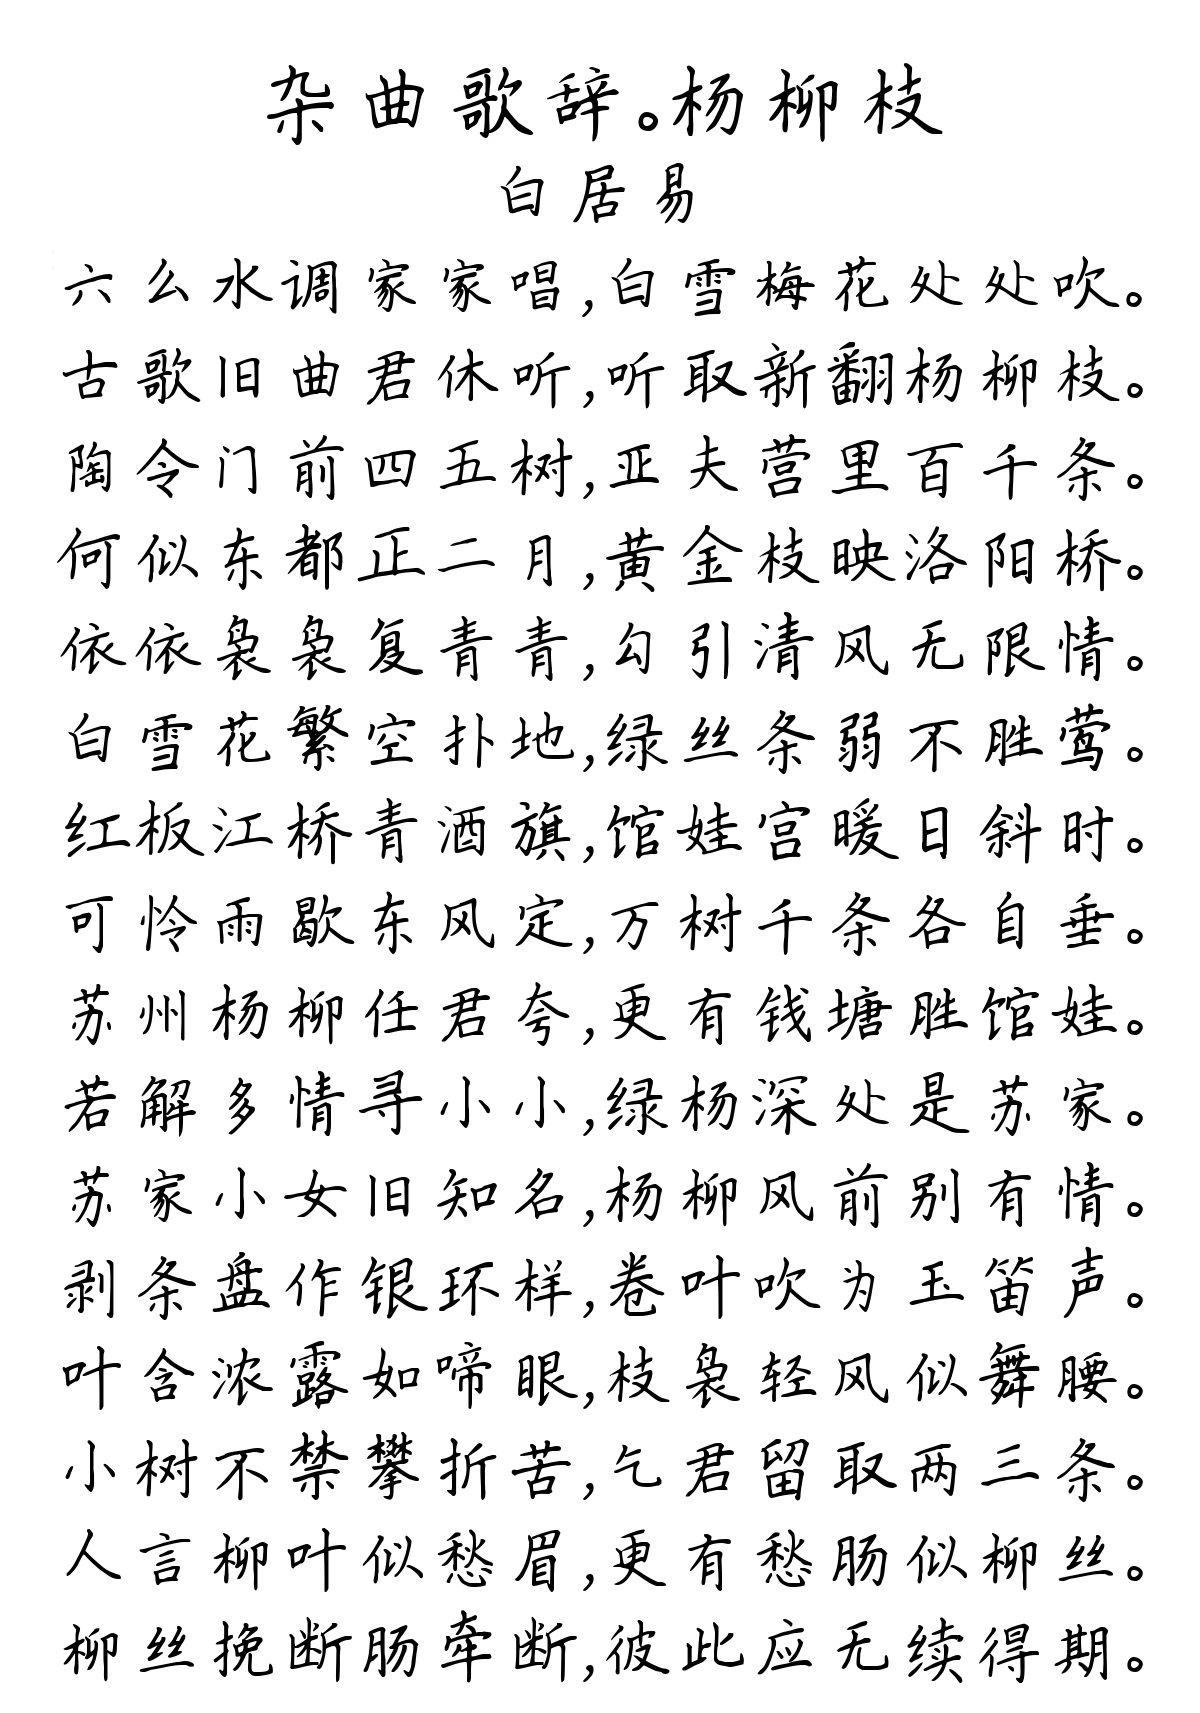 杂曲歌辞。杨柳枝
白居易
六么水调家家唱,白雪梅花处处吹。
古歌旧曲君休听,听取新翻杨柳枝。
陶令门前四五树,亚夫营里百千条。
何似东都正二月,黄金枝映洛阳桥。
依依袅袅复青青,勾引清风无限情。
白雪花繁空扑地,绿丝条弱不胜莺。
红板江桥青酒旗,馆娃宫暖日斜时。
可怜雨歇东风定,万树千条各自垂。
苏州杨柳任君夸,更有钱塘胜馆娃。
若解多情寻小小,绿杨深处是苏家。
苏家小女旧知名,杨柳风前别有情。
剥条盘作银环样,卷叶吹为玉笛声。
叶含浓露如啼眼,枝袅轻风似舞腰。
小树不禁攀折苦,乞君留取两三条。
人言柳叶似愁眉,更有愁肠似柳丝。
柳丝挽断肠牵断,彼此应无续得期。